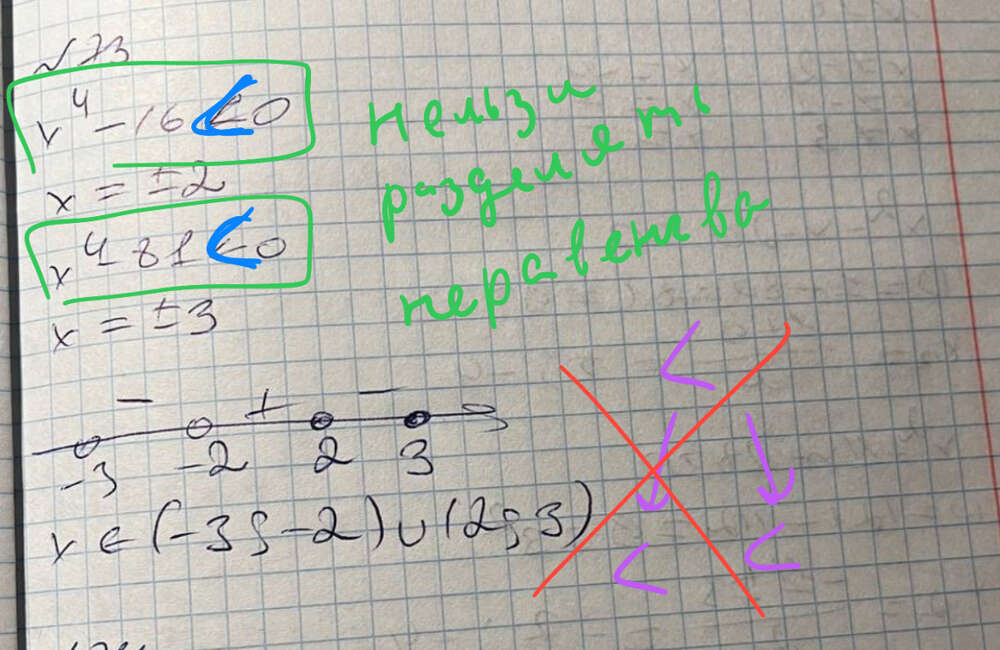 √73
x⁴ - 16 < 0
x = ±2
x⁴ 81 < 0
x = ±3
Нельзя
разделять
неравенства
<
< <
- + -
-3 -2 2 3
x ∈ (-3; -2) ∪ (2; 3)